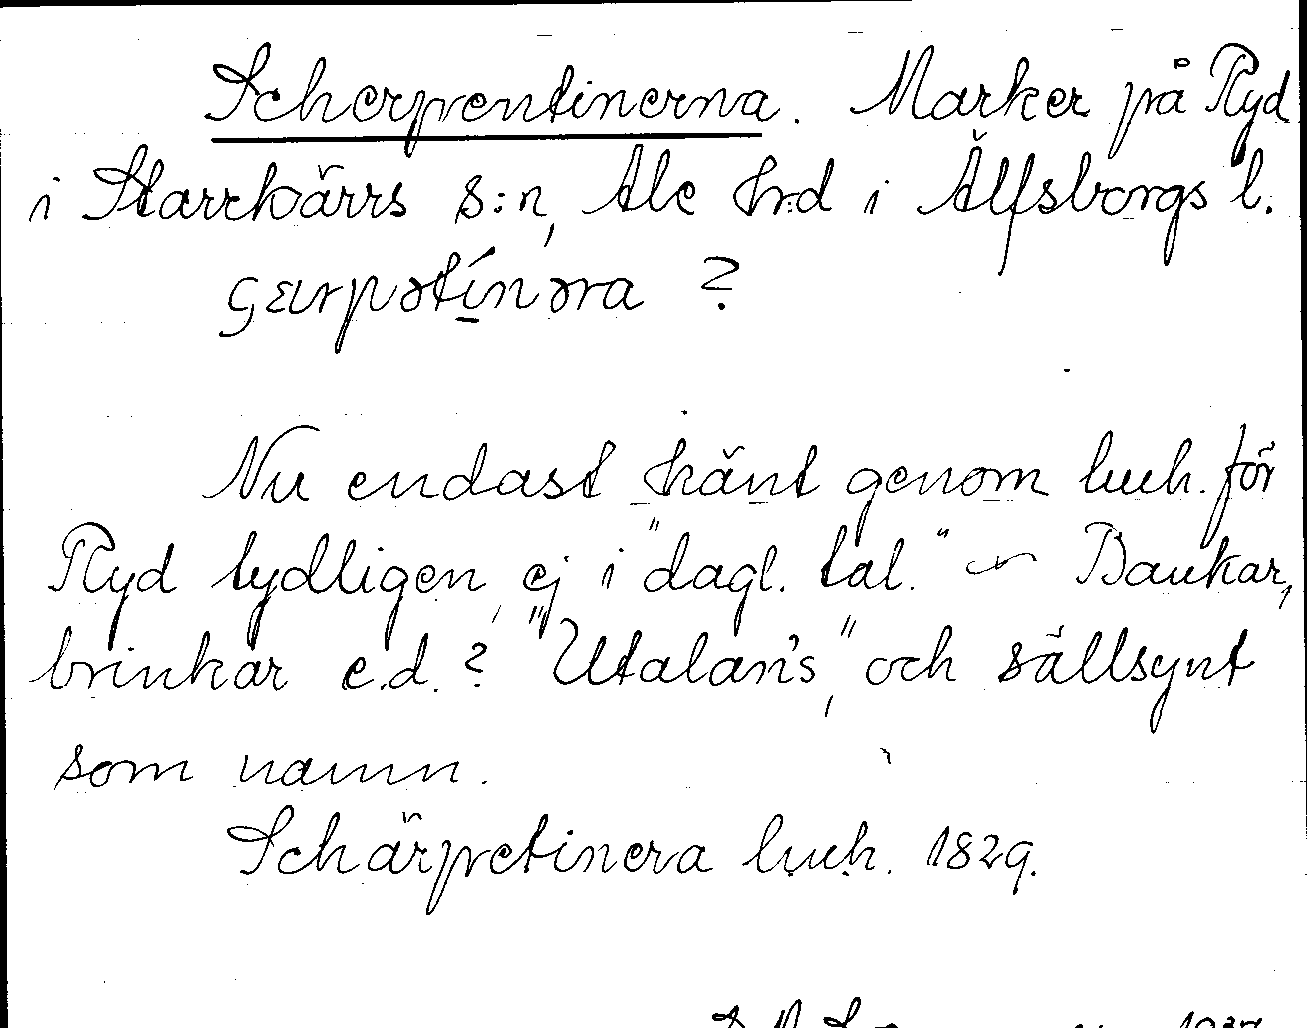 Scherpentinerna. Marker på Ryd
i Starrkärrs s:n, Ale hrd i Älfsborgs l.
ɕærpətínəra ?
Nu endast känt genom luch. för
Ryd tydligen, ej i "dagl. tal." ~ Backar,
brinkar e.d.? "Utalan's", och sällsynt
som namn.
Schärpetinera luch. 1829.